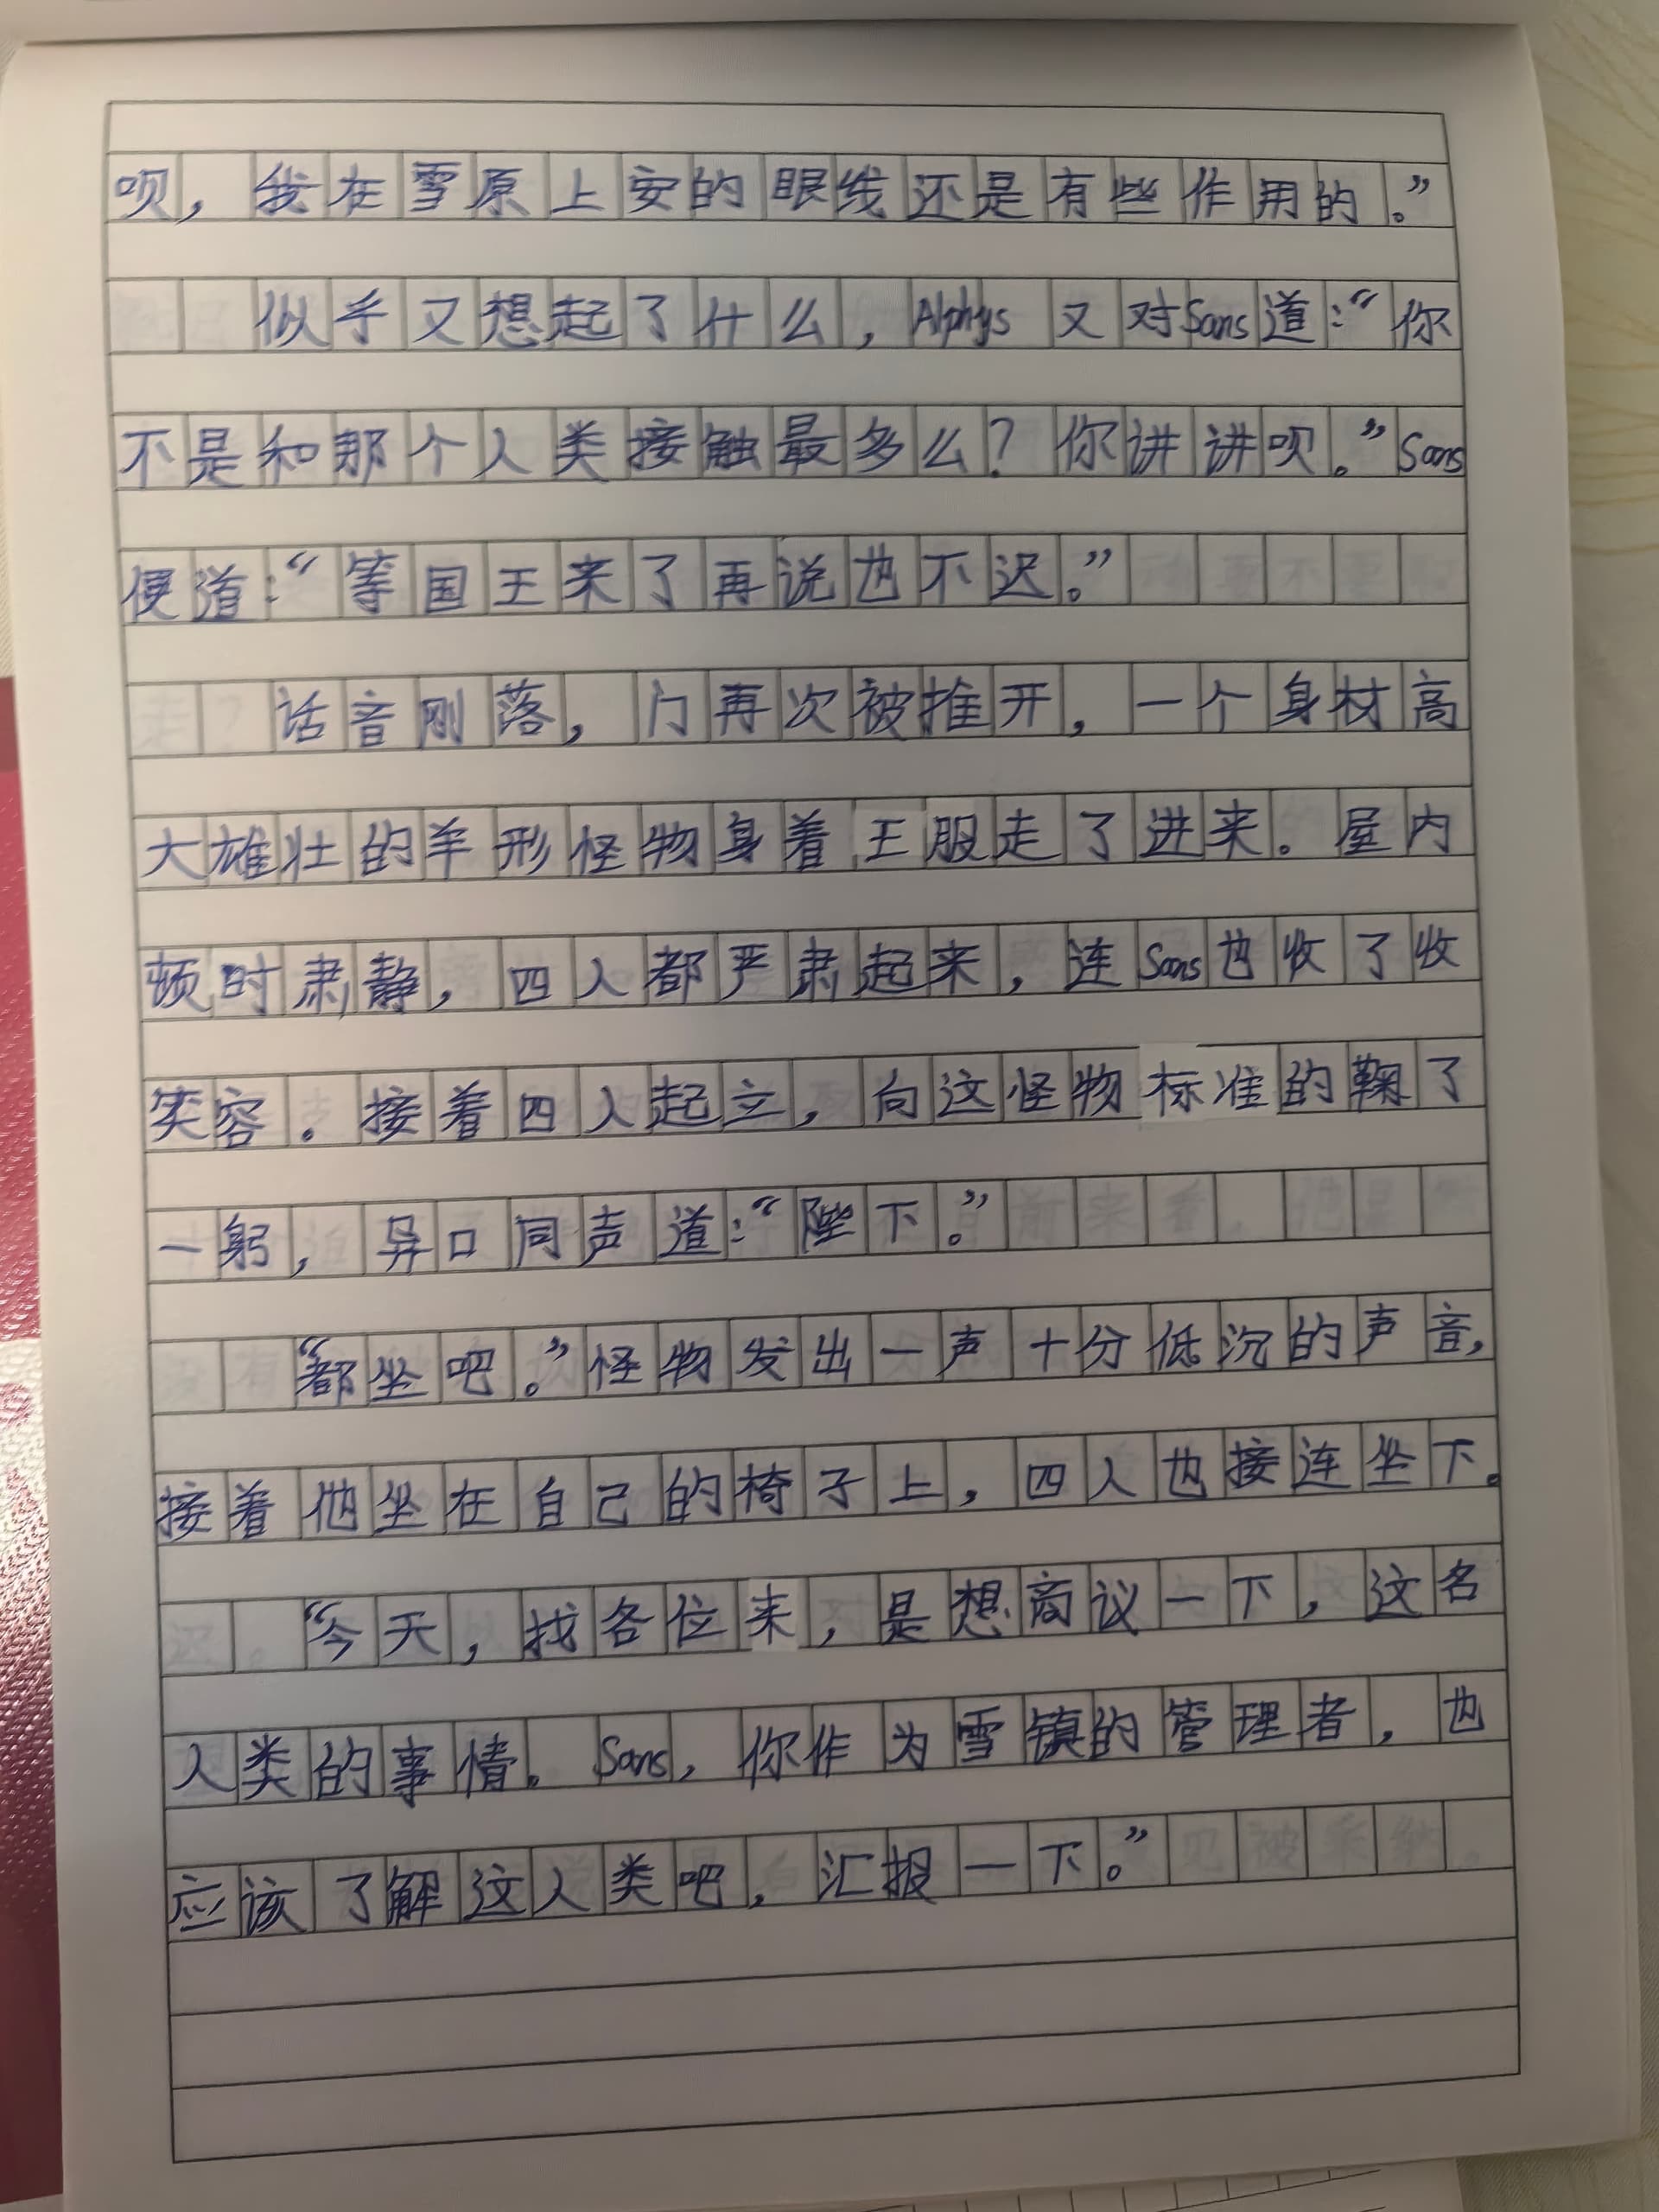 呗，我在雪原上安的眼线还是有些作用的。”
似乎又想起了什么，Alphys 又对Sans道：“你
不是和那个人类接触最多么？你讲讲呗。”Sans
便道：“等国王来了再说也不迟。”
话音刚落，门再次被推开，一个身材高
大雄壮的羊形怪物身着王服走了进来。屋内
顿时肃静，四人都严肃起来，连Sans也收了收
笑容。接着四人起立，向这怪物标准的鞠了
一躬，异口同声道：“陛下。”
“都坐吧。”怪物发出一声十分低沉的声音，
接着他坐在自己的椅子上，四人也接连坐下。
“今天，找各位来，是想商议一下，这名
人类的事情。Sans，你作为雪镇的管理者，也
应该了解这人类吧，汇报一下。”